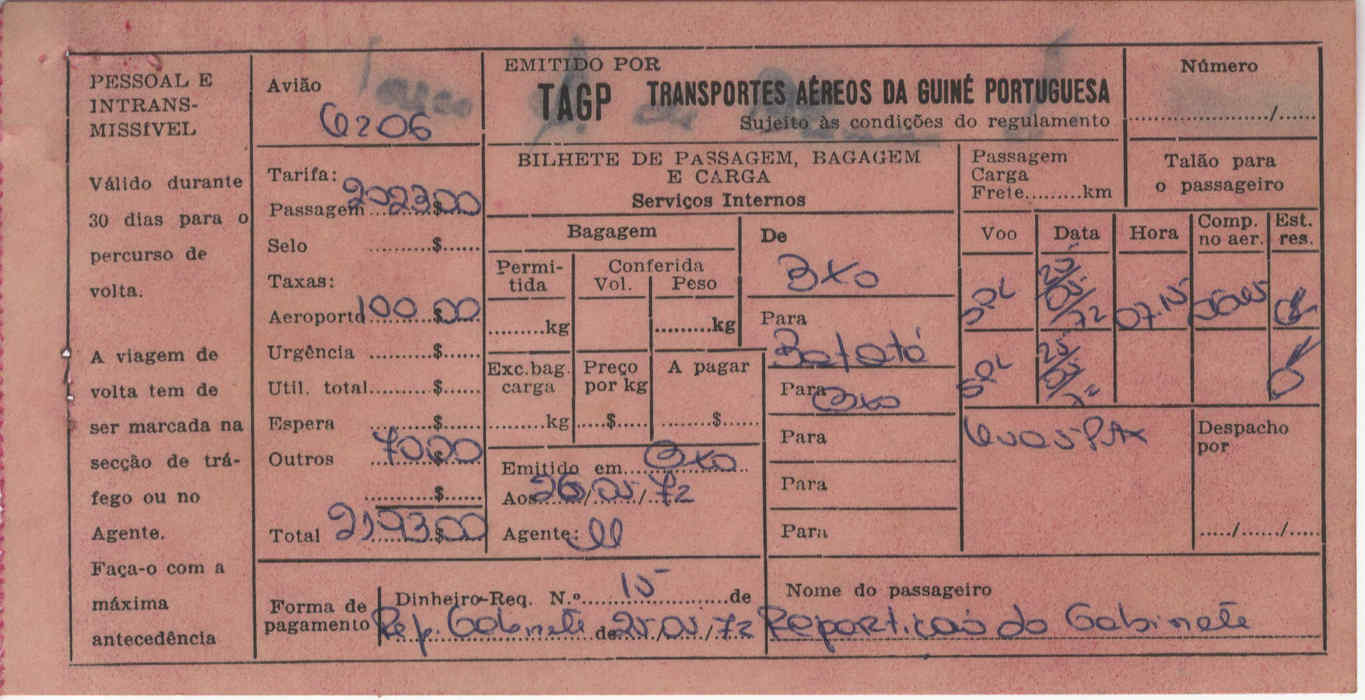 PESSOAL E
INTRANS-
MISSÍVEL
Válido durante
30 dias para o
percurso de
volta.
A viagem de
volta tem de
ser marcada na
secção de trá-
fego ou no
Agente.
Faça-o com a
máxima
antecedência
Avião
6206
Tarifa:
Passagem 2023$00
Selo ..........$......
Taxas:
Aeroporto 100$00
Urgência ..........$......
Util. total..........$......
Espera ..........$......
Outros 70$00
..........$......
Total 2193$00
EMITIDO POR
TAGP TRANSPORTES AÉREOS DA GUINÉ PORTUGUESA
Sujeito às condições do regulamento
BILHETE DE PASSAGEM, BAGAGEM
E CARGA
Serviços Internos
Bagagem
Permi-
tida
Conferida
Vol. Peso
.........kg .........kg
Exc.bag.
carga
Preço
por kg
A pagar
.........kg .....$..... .......$.....
Emitido em Bxo
Aos 26/05/72
Agente:
De
Bxo
Para
Bafatá
Para Bxo
Para
Para
Para
Número
............../......
Passagem
Carga
Frete.........km
Talão para
o passageiro
Voo Data Hora Comp.
no aer. Est.
res.
SPL 25/05/72 07.15 OK
SPL 25/05/72 OK
Despacho
por
...../....../......
Forma de
pagamento
Dinheiro-Req. N.º 15 de
Rep. Gabinete de 25/05/72
Nome do passageiro
Repartição do Gabinete